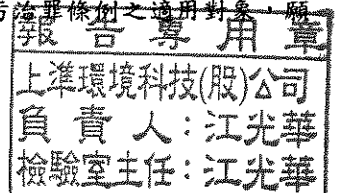 污治罪條例之適用對象，願
報告專用章
上準環境科技(股)公司
負責人：江光華
檢驗室主任：江光華